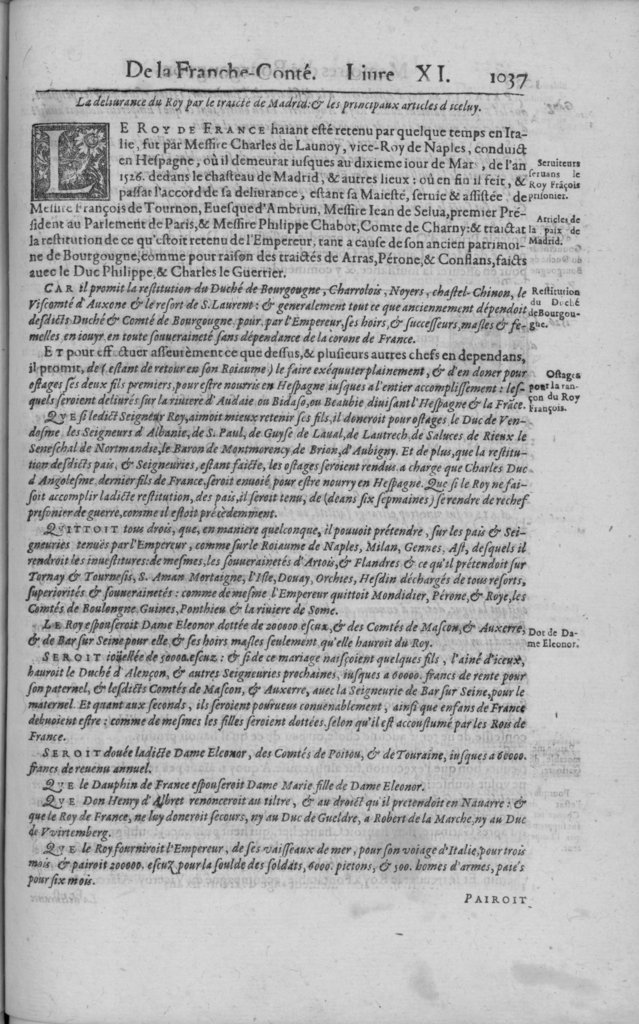 De la Franche-Conté. Liure XI. 1037
La deliurance du Roy par le traicté de Madrid: & les principaux articles d'iceluy.
LE ROY DE FRANCE haiant esté retenu par quelque temps en Ita-
lie, fut par Messire Charles de Launoy, vice-Roy de Naples, conduict
en Hespagne, où il demeurat iusques au dixieme iour de Mars, de l'an
1526. dedans le chasteau de Madrid, & autres lieux: où en fin il feit, &
passat l'accord de sa deliurance, estant sa Maiesté, seruie & assistée, de
Messire François de Tournon, Euesque d'Ambrun, Messire Iean de Selua, premier Pre-
sident au Parlement de Paris, & Messire Philippe Chabot, Comte de Charny: & traictat
la restitution de ce qu'estoit retenu de l'Empereur, tant a cause de son ancien patrimoi-
ne de Bourgougne, comme pour raison des traictés de Arras, Pérone, & Conflans, faicts
auec le Duc Philippe, & Charles le Guerrier.
Seruiteurs
seruans le
Roy Frãçois
prisonier.
Articles de
la paix de
Madrid.
CAR il promit la restitution du Duché de Bourgougne, Charrolois, Noyers, chastel-Chinon, le
Viscomté d'Auxone & le resort de S. Laurent: & generalement tout ce que anciennement dépendoit
desdicts Duché & Comté de Bourgougne. pour, par l'Empereur, ses hoirs, & successeurs, masles & fe-
melles en iouyr en toute souuraineté sans dépendance de la corone de France.
Restitution
du Duché
de Bourgou-
gne.
ET pour effectuer asseurément ce que dessus, & plusieurs autres chefs en dependans,
il promit, de (estant de retour en son Roiaume) le faire exéquuter plainement, & d'en doner pour
ostages ses deux fils premiers, pour estre nourris en Hespagne iusques a l'entier accomplissement: les-
quels seroient deliurés sur la riuiere d'Audaie ou Bidaso, ou Beaubie diuisant l'Hespagne & la Frãce.
Ostages
pour la ran-
çon du Roy
François.
QVE si ledict Seigneur Roy, aimoit mieux retenir ses fils, il doneroit pour ostages le Duc de Ven-
dosme, les Seigneurs d'Albanie, de S. Paul, de Guyse de Laual, de Lautrech, de Saluces de Rieux le
Seneschal de Normandie, le Baron de Montmorency, de Brion, d'Aubigny. Et de plus, que la restitu-
tion desdicts pais, & Seigneuries, estant faicte, les ostages seroient rendus a charge que Charles Duc
d'Angolesme, dernier fils de France, seroit enuoié, pour estre nourry en Hespagne. Que si le Roy ne fai-
soit accomplir ladicte restitution, des pais, il seroit tenu, de (deans six sepmaines) se rendre de rechef
prisonier de guerre, comme il estoit précedemment.
QVITTOIT tous drois, que, en maniere quelconque, il pouuoit prétendre, sur les pais & Sei-
gneuries tenues par l'Empereur, comme sur le Roiaume de Naples, Milan, Gennes, Ast, desquels il
rendroit les inuestitures: de mesmes, les souueraineteés d'Artois, & Flandres & ce qu'il prétendoit sur
Tornay & Tournesis, S. Aman, Mortaigne, l'Isle, Douay, Orchies, Hesdin déchargés de tous resorts,
superiorités & souuerainetés: comme de mesme l'Empereur quittoit Mondidier, Pérone, & Roye, les
Comtés de Boulongne, Guines, Ponthieu & la riuiere de Some.
LE Roy esponseroit Dame Eleonor dottée de 200000 escuz, & des Comtés de Mascon, & Auxerre,
& de Bar sur Seine pour elle, & ses hoirs masles seulement qu'elle hauroit du Roy.
Dot de Da-
me Eleonor.
SEROIT ioüellée de 50000. escuz: & si de ce mariage naiscoient quelques fils, l'ainé d'iceux,
hauroit le Duché d'Alençon, & autres Seigneuries prochaines, iusques a 60000. francs de rente pour
son paternel, & lesdicts Comtés de Mascon, & Auxerre, auec la Seigneurie de Bar sur Seine, pour le
maternel. Et quant aux seconds, ils seroient pourueus conuenablement, ainsi que enfans de France
debuoient estre: comme de mesmes les filles seroient dottées, selon qu'il est accoustumé par les Rois de
France.
SEROIT douée ladicte Dame Eleonor, des Comtés de Poitou, & de Touraine, iusques a 60000.
francs de reuenu annuel.
QVE le Dauphin de France espouseroit Dame Marie, fille de Dame Eleonor.
QVE Don Henry d'Albret renonceroit au tiltre, & au droict qu'il pretendoit en Nauarre: &
que le Roy de France, ne luy doneroit secours, ny au Duc de Gueldre, a Robert de la Marche, ny au Duc
de Vvirtemberg.
QVE le Roy fourniroit l'Empereur, de ses vaisseaux de mer, pour son voiage d'Italie, pour trois
mois & pairoit 200000. escuz, pour la soulde des soldats, 6000. pietons, & 500. homes d'armes, paiés
pour six mois.
PAIROIT